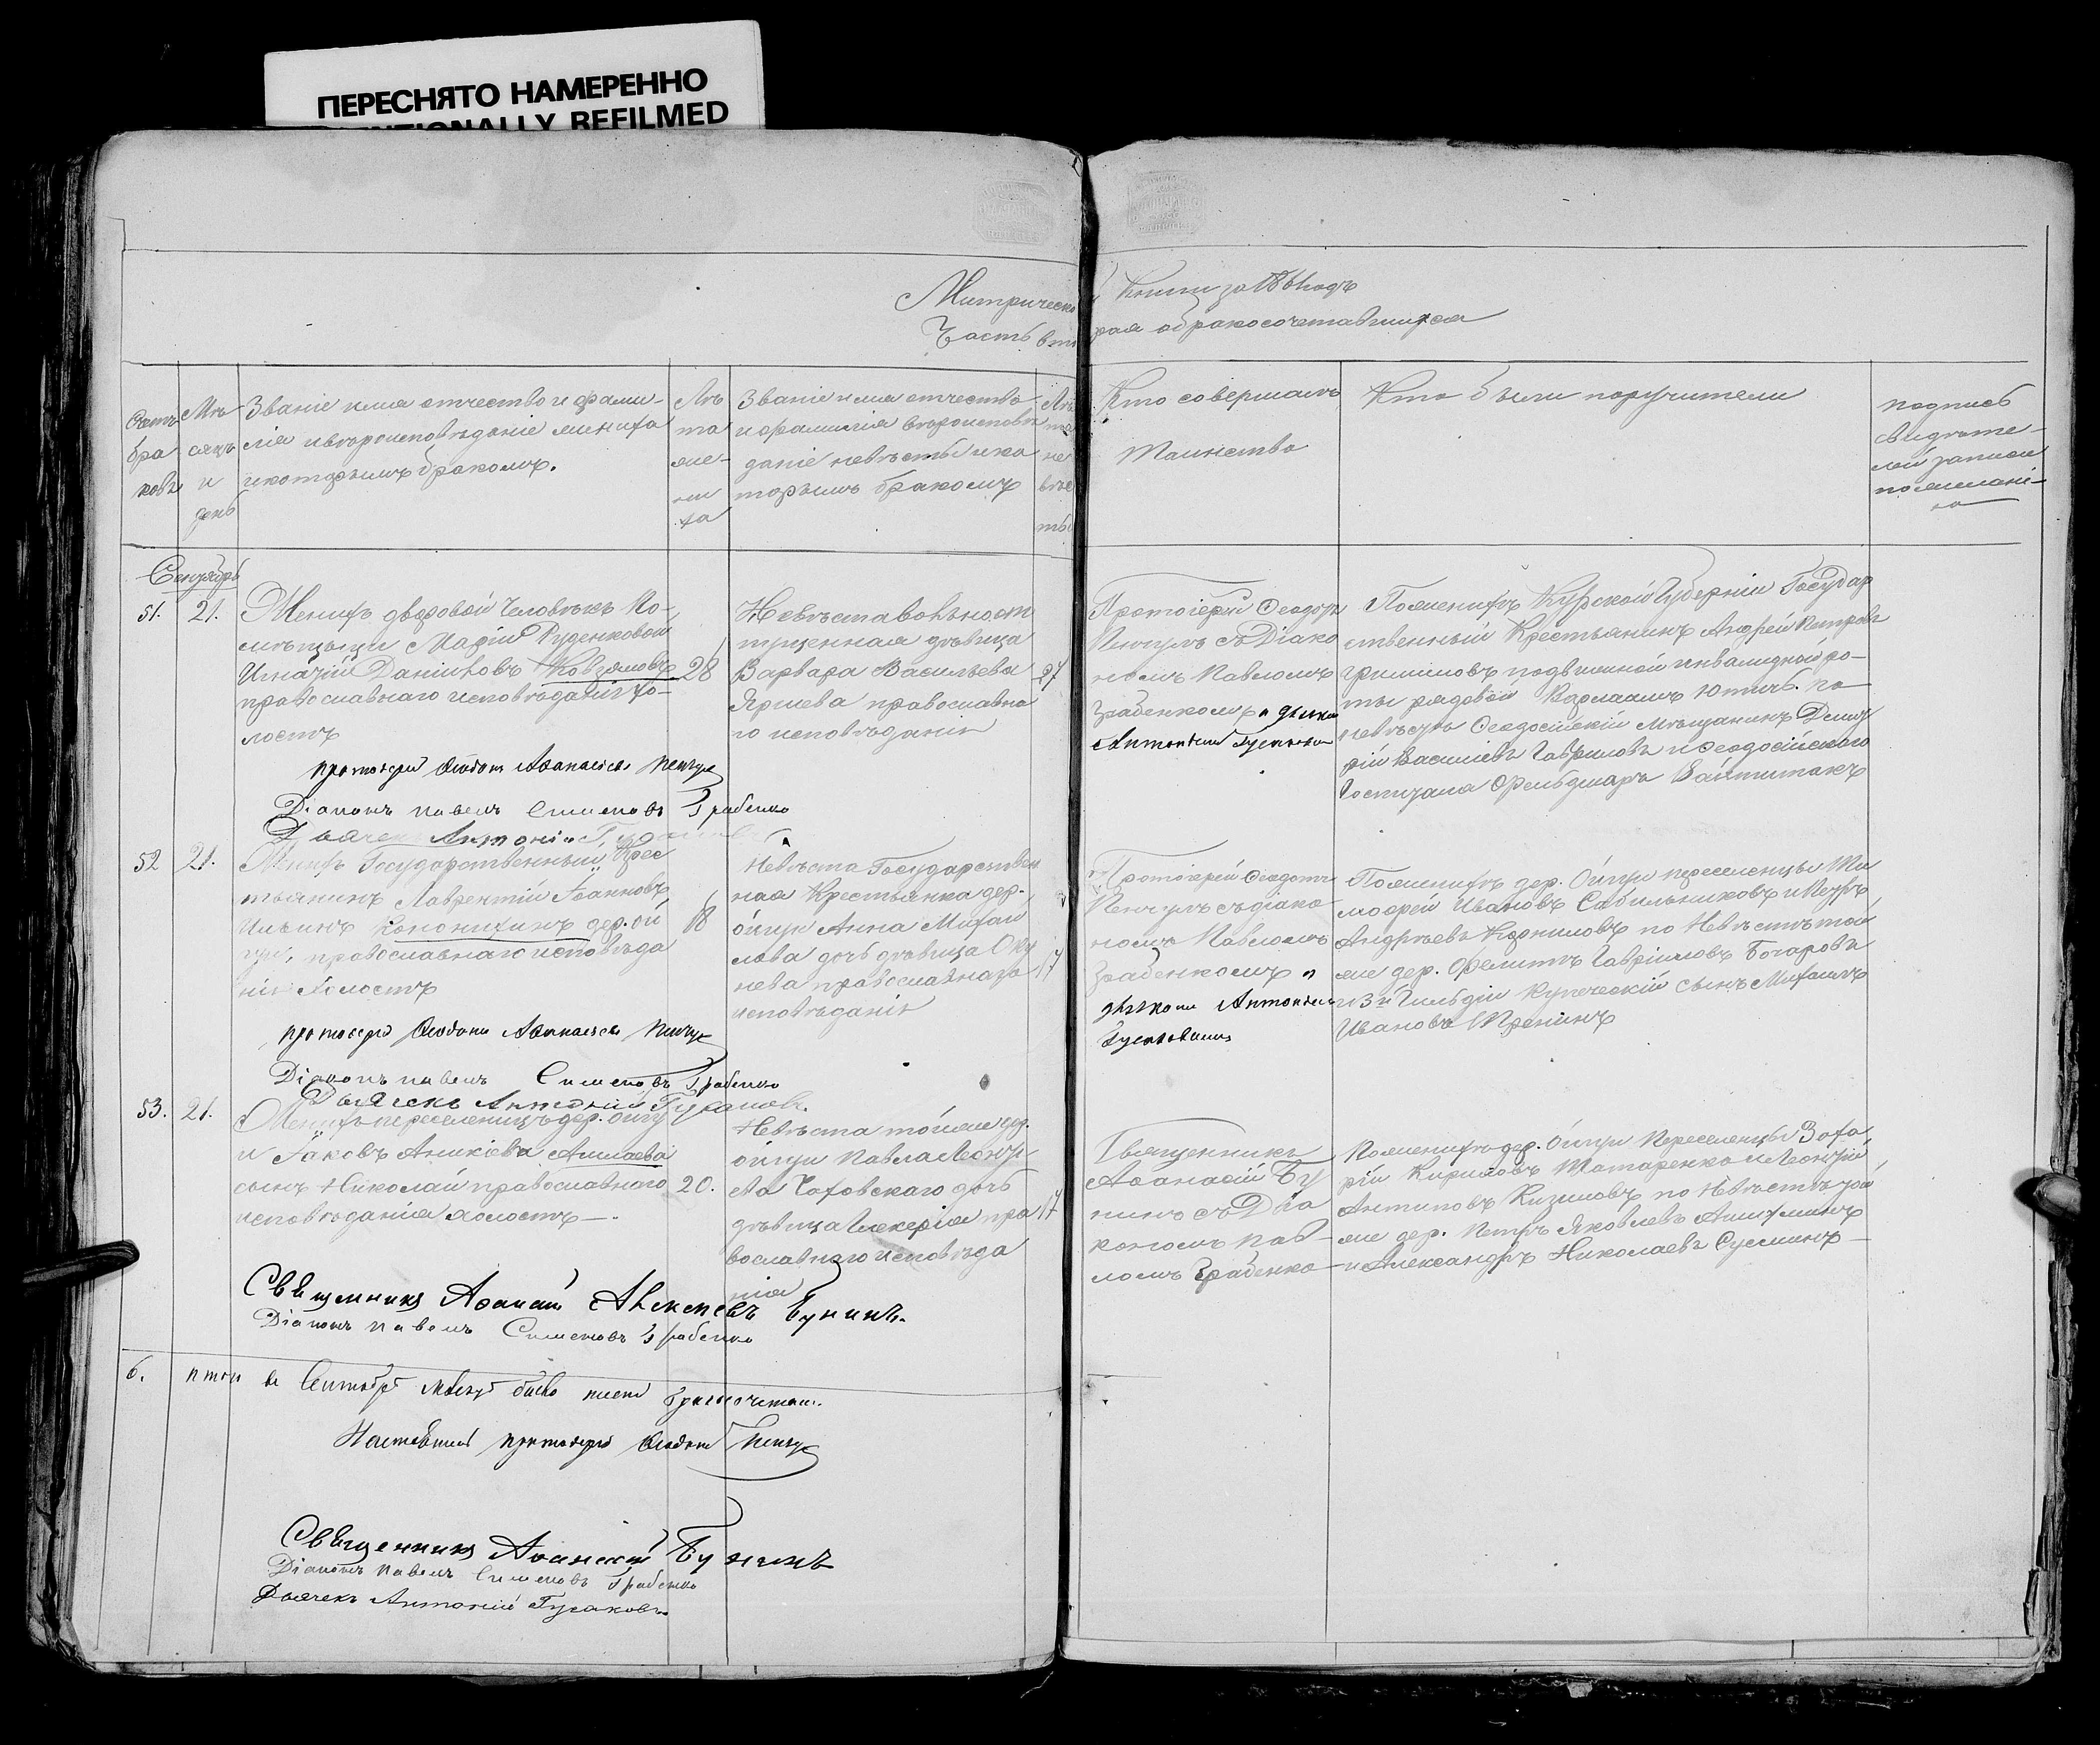 ПЕРЕСНЯТО НАМЕРЕННО
INTENTIONALLY REFILMED
Метрической Книги за 1861 годъ
Часть вторая о бракосочетавшихся
Счетъ браковъ
Мѣсяцъ и день
Званіе имя отчество и фами-
лія и вѣроисповѣданіе жениха
и которымъ бракомъ.
Лѣ
та
же-
ни
ха
Званіе имя отчество
и фамилія вѣроисповѣ
даніе невѣсты и ко
торымъ бракомъ
Лѣ
та
не
вѣс
ты
Кто совершалъ
Таинство
Кто были поручители
подпись
свидѣте-
лей записи
по желані-
ю
Сентябрь
51. 21.
Женихъ дворовой человѣкъ По-
мѣщицы Маріи Руденковой
Игнатій Даніиловъ Ковзаловъ
православнаго исповѣданія хо-
лостъ
28
Невѣста вольноот
пущенная дѣвица
Варвара Васильева
Ярцева православна
го исповѣданія
27
Протоіерей Ѳеодотъ
Пенчулъ съ Діако
номъ Павломъ
Грабенкомъ и дьячкомъ
Антоніемъ Гусаковымъ
По женихѣ Курской Губерніи Государ
ственный Крестьянинъ Андрей Петровъ
подвижной инвалидной ро-
ты рядовой Варлаамъ по
невѣстѣ Ѳеодосійскій мѣщанинъ Дмит
рій Васильевъ Гавриловъ и Ѳеодосійскаго
Госпиталя Фельдшеръ
протоіерей Ѳеодотъ Аѳанасьевъ Пенчулъ
Діаконъ Павелъ Симеоновъ Грабенко
Дьячекъ Антоній Гусаковъ
52 21.
Женихъ Государственный Крес
тьянинъ Лаврентій Іоанновъ
Ильинъ Кононихинъ дер. ой
гуи, православнаго исповѣда
нія холостъ
18
Невѣста Государствен
ная Крестьянка дер.
ойгуи Анна Михай
лова дочь дѣвица Оку
нева православнаго
исповѣданія
17
Протоіерей Ѳеодотъ
Пенчулъ съ діако
номъ Павломъ
Грабенкомъ и
дьячкомъ Антоніемъ
Гусаковымъ
По женихѣ дер. Ойгуи переселенцы Ти
моѳей Ивановъ Сабельниковъ и Петръ
Андреевъ Корниловъ по Невѣстѣ той
же дер. Филиппъ Гавріиловъ Богаровъ
и 3й Гильдіи Купеческій сынъ Михаилъ
Ивановъ
протоіерей Ѳеодотъ Аѳанасьевъ Пенчулъ
Діаконъ Павелъ Симеоновъ Грабенко
Дьячекъ Антоній Гусаковъ.
53. 21.
Женихъ переселенецъ дер. Ойгу
и Іаковъ Аникіевъ Ашпаева
сынъ Николай православнаго
исповѣданія холостъ —.
20.
Невѣста той же дер.
ойгуи Павла Леонть
ева Чаховскаго дочь
дѣвица Гликерія пра
вославнаго исповѣда
нія
17
Священникъ
Аѳанасій Бу
нинъ съ Діа
кономъ Пав-
ломъ Грабенко
По женихѣ дер. Ойгуи Переселенцы Заха
рій Кириловъ Татаренко и Леонтій
Антиповъ Кизиловъ по Невѣстѣ той
же дер. Петръ Яковлевъ
и Александръ Николаевъ Суслинъ —
Священникъ Аѳанасій Алексеевъ Бунинъ.
Діаконъ Павелъ Симеоновъ Грабенко
въ Сентябрѣ мѣсяцѣ было шесть бракосочетан.
Настоятель протоіерей Ѳеодотъ Пенчулъ
Священникъ Аѳанасій Бунинъ
Діаконъ Павелъ Симеоновъ Грабенко
Дьячекъ Антоній Гусаковъ.